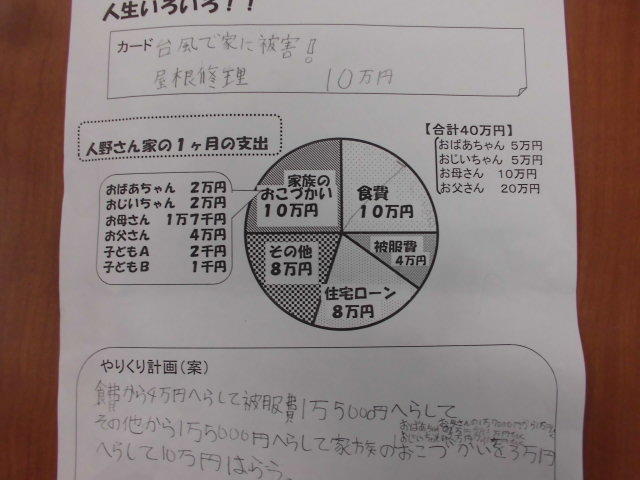 人生いろいろ！！
カード 台風で家に被害!!
屋根修理 10万円
人野さん家の１ヶ月の支出
【合計40万円】
おばあちゃん 5万円
おじいちゃん 5万円
お母さん 10万円
お父さん 20万円
おばあちゃん 2万円
おじいちゃん 2万円
お母さん 1万7千円
お父さん 4万円
子どもA 2千円
子どもB 1千円
家族の
おこづかい
10万円
食費
10万円
被服費
4万円
住宅ローン
8万円
その他
8万円
やりくり計画（案）
食費から4万円へらして被服費1万5000円へらして
その他から1万5000円へらして家族のおこづかいを3万円
へらして10万円はらう。